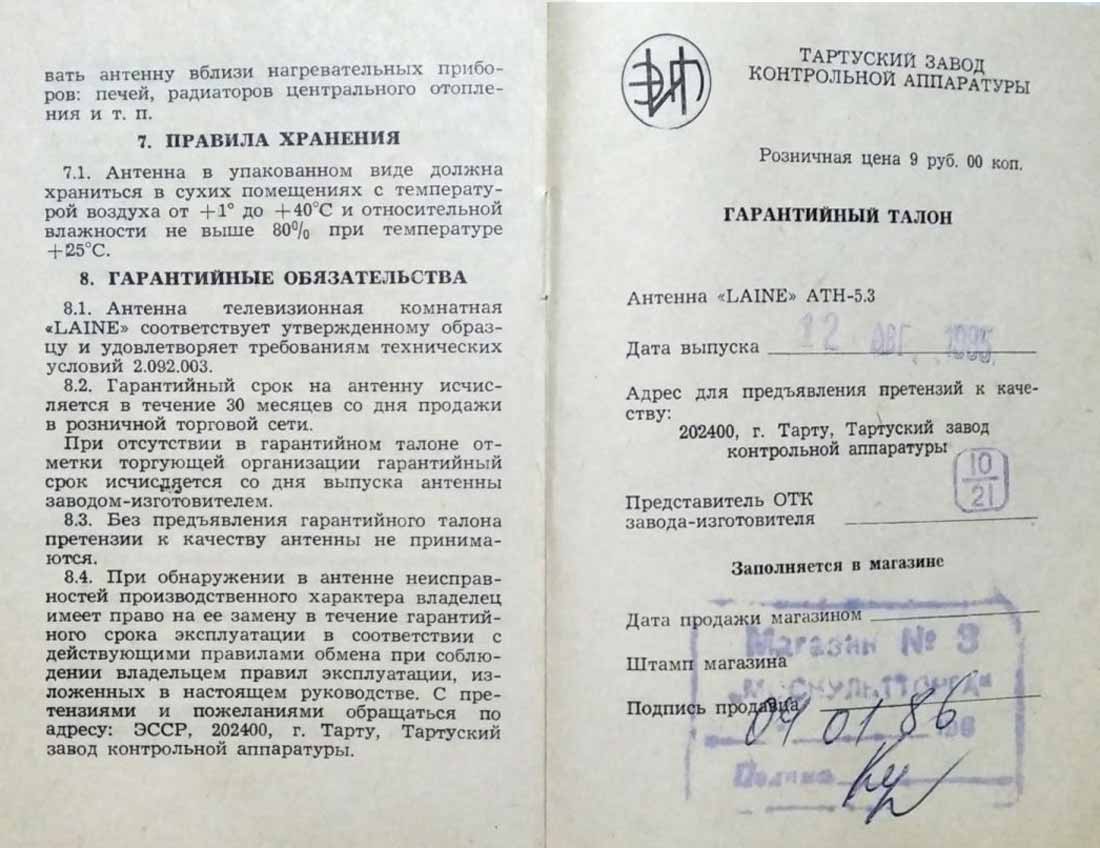 вать антенну вблизи нагревательных прибо-
ров: печей, радиаторов центрального отопле-
ния и т. п.
7. ПРАВИЛА ХРАНЕНИЯ
7.1. Антенна в упакованном виде должна
храниться в сухих помещениях с температу-
рой воздуха от +1° до +40°С и относительной
влажности не выше 80% при температуре
+25°С.
8. ГАРАНТИЙНЫЕ ОБЯЗАТЕЛЬСТВА
8.1. Антенна телевизионная комнатная
«LAINE» соответствует утвержденному образ-
цу и удовлетворяет требованиям технических
условий 2.092.003.
8.2. Гарантийный срок на антенну исчис-
ляется в течение 30 месяцев со дня продажи
в розничной торговой сети.
При отсутствии в гарантийном талоне от-
метки торгующей организации гарантийный
срок исчисляется со дня выпуска антенны
заводом-изготовителем.
8.3. Без предъявления гарантийного талона
претензии к качеству антенны не принима-
ются.
8.4. При обнаружении в антенне неисправ-
ностей производственного характера владелец
имеет право на ее замену в течение гарантий-
ного срока эксплуатации в соответствии с
действующими правилами обмена при соблю-
дении владельцем правил эксплуатации, из-
ложенных в настоящем руководстве. С пре-
тензиями и пожеланиями обращаться по
адресу: ЭССР, 202400, г. Тарту, Тартуский
завод контрольной аппаратуры.
ТАРТУСКИЙ ЗАВОД
КОНТРОЛЬНОЙ АППАРАТУРЫ
Розничная цена 9 руб. 00 коп.
ГАРАНТИЙНЫЙ ТАЛОН
Антенна «LAINE» АТН-5.3
Дата выпуска 12 АВГ. 1985
Адрес для предъявления претензий к каче-
ству:
202400, г. Тарту, Тартуский завод
контрольной аппаратуры
10
21
Представитель ОТК
завода-изготовителя
Заполняется в магазине
Дата продажи магазином
Магазин № 3
Штамп магазина
Подпись продавца
04 01 86
198